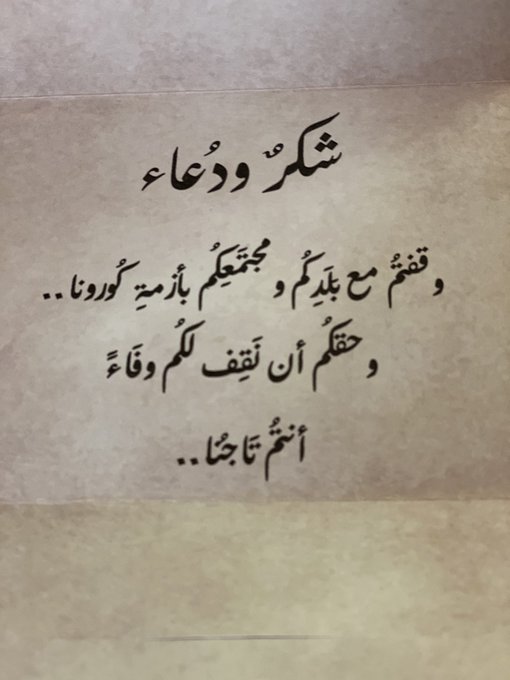 شكرٌ ودُعاء
وقفتمُ مع بلَدِكُم ومجتمَعِكُم بأزمةِ كُورونا..
وحقكُم أن نَقِف لكُم وفَاءً
أنتمُ تَاجنُا..